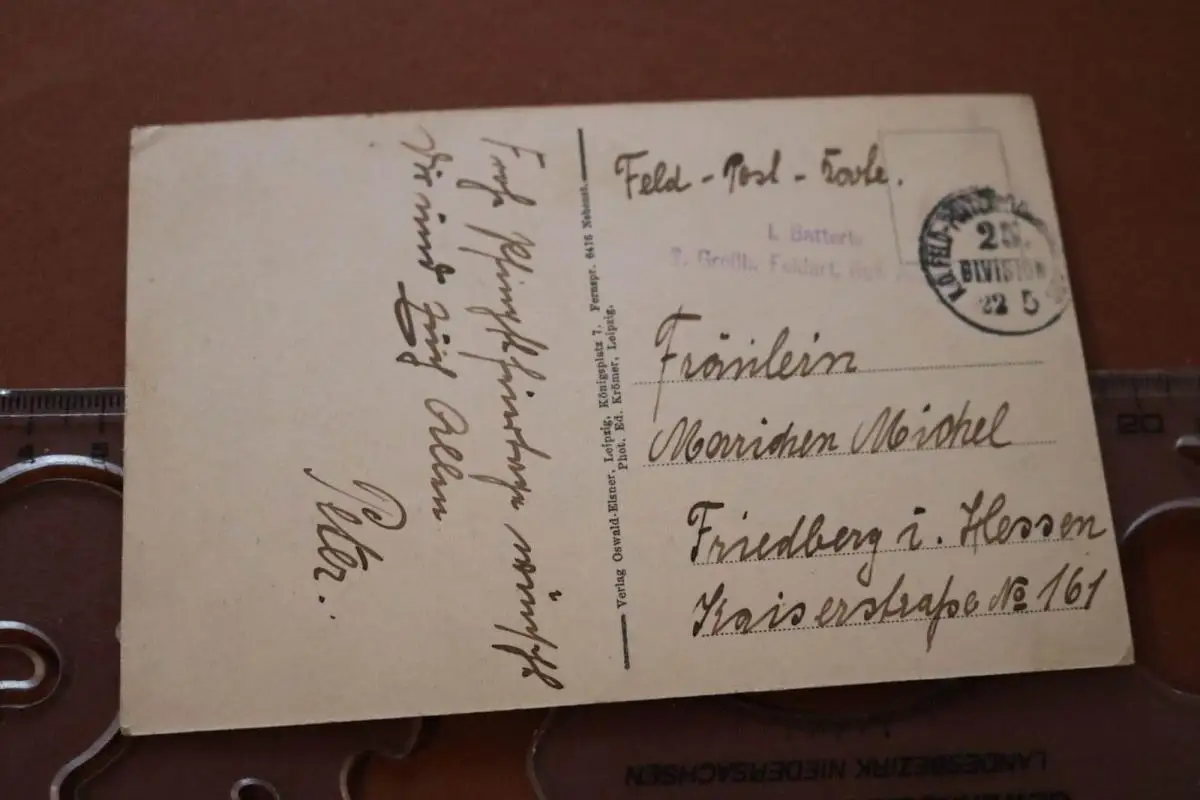 Frohe Pfingstfeiertage wünscht
Dir und Euch Allen
Peter.
Verlag Oswald-Elsner, Leipzig, Königsplatz 7. Fernspr. 6416 Nebenst.
Phot. Ed. Krömer, Leipzig.
Feld-Post-Karte.
I. Batterie
2. Großh. Feldart. Regt.
K.D. FELD-POST
25.
DIVISION
22 5
Fräulein
Marichen Michel
Friedberg i. Hessen
Kaiserstraße No 161
4 5
20
LANDESBEZIRK NIEDERSACHSEN